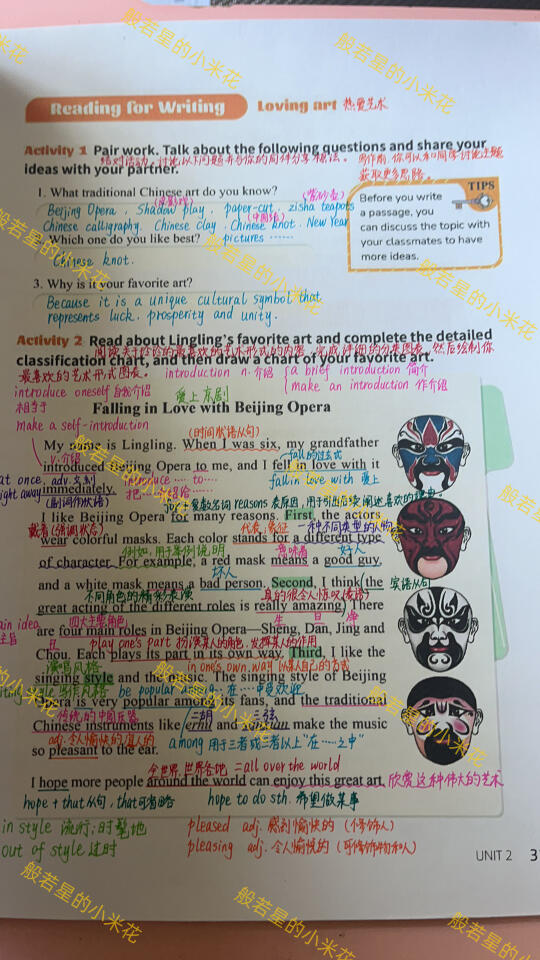 Reading for Writing Loving art 热爱艺术
Activity 1 Pair work. Talk about the following questions and share your
结对活动。讨论以下问题并与你的同伴分享想法。
ideas with your partner.
写作前,你可以和同学讨论主题
获取更多思路。
1. What traditional Chinese art do you know?
(皮影戏) (紫砂壶)
Beijing Opera, Shadow play, paper-cut, zisha teapots
(中国结)
Chinese calligraphy, Chinese clay, Chinese knot, New Year
Which one do you like best? pictures ……
Chinese knot.
TIPS
Before you write
a passage, you
can discuss the topic with
your classmates to have
more ideas.
3. Why is it your favorite art?
Because it is a unique cultural symbol that
represents luck, prosperity and unity.
Activity 2 Read about Lingling's favorite art and complete the detailed
classification chart, and then draw a chart of your favorite art.
最喜欢的艺术形式图表。 introduction n.介绍 a brief introduction 简介
introduce oneself 自我介绍 make an introduction 作介绍
相当于 爱上京剧
make a self-introduction
Falling in Love with Beijing Opera
(时间状语从句)
My name is Lingling. When I was six, my grandfather
v.介绍 fall的过去式
introduced Beijing Opera to me, and I fell in love with it
at once. adv.立刻 introduce … to … fall in love with 爱上
right away immediately. 把……介绍给……
(副词作状语)
I like Beijing Opera for many reasons. First, the actors
代表、象征 一种不同类型的人物
wear colorful masks. Each color stands for a different type
例如,用于举例说明 意味着 好人
of character. For example, a red mask means a good guy,
坏人
and a white mask means a bad person. Second, I think (the 宾语从句
不同角色的精彩表演
great acting of the different roles is really amazing). There
main idea 四大主要角色 生 旦 净
主旨 are four main roles in Beijing Opera—Sheng, Dan, Jing and
丑 play one's part 扮演某人的角色,发挥某人的作用
Chou. Each plays its part in its own way. Third, I like the
演唱风格 in one's own way 以某人自己的方式
singing style and the music. The singing style of Beijing
writing style 写作风格 be popular among 在…中受欢迎
Opera is very popular among its fans, and the traditional
传统的中国乐器 二胡 三弦
Chinese instruments like erhu and sanxian make the music
adj.令人愉快的
so pleasant to the ear. among 用于三者或三者以上"在……之中"
全世界,世界各地 =all over the world
I hope more people around the world can enjoy this great art. 欣赏这种伟大的艺术
hope + that从句,that可省略 hope to do sth. 希望做某事
in style 流行;时髦地 pleased adj.感到愉快的(修饰人)
out of style 过时 pleasing adj.令人愉悦的(可修饰物和人)
UNIT 2 3
般若星的小米花